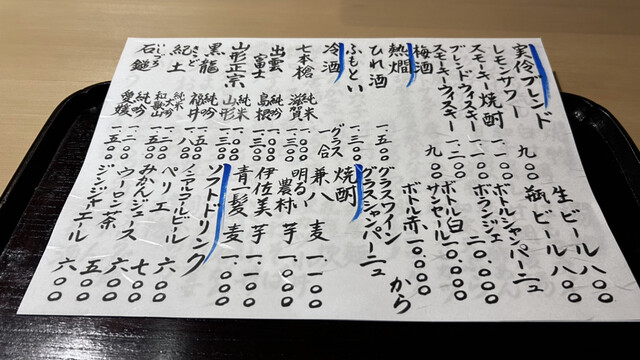 実伶ブレンド
レモンサワー 九〇〇
スモーキー焼酎
ブレンドウィスキー 一、二〇〇
スモーキーウィスキー
梅酒 九〇〇
熱燗
ひれ酒 一、五〇〇
ふもとい
冷酒 グラス 一合
七本槍 純米 滋賀 一、三〇〇
出雲富士 純吟 島根 一、三〇〇
山形正宗 純米 山形
黒龍 純吟 福井 一、五〇〇
紀土 きっど 純米大吟 和歌山
石鎚 いしづち 純吟 愛媛 一、五〇〇
生ビール 八〇〇
瓶ビール 八〇〇
ボトルシャンパーニュ
ボランジェ 二〇、〇〇〇
ボトル白
サンセール 一〇、〇〇〇
ボトル赤 一〇、〇〇〇から
グラスワイン
グラスシャンパーニュ
焼酎
兼八 麦 一、一〇〇
明るい農村 芋 一、〇〇〇
伊佐美 芋 一、一〇〇
青一髪 麦 一、〇〇〇
ソフトドリンク
ノンアルコールビール
ペリエ 六〇〇
みかんジュース 七〇〇
ウーロン茶 六〇〇
ジンジャエール 六〇〇